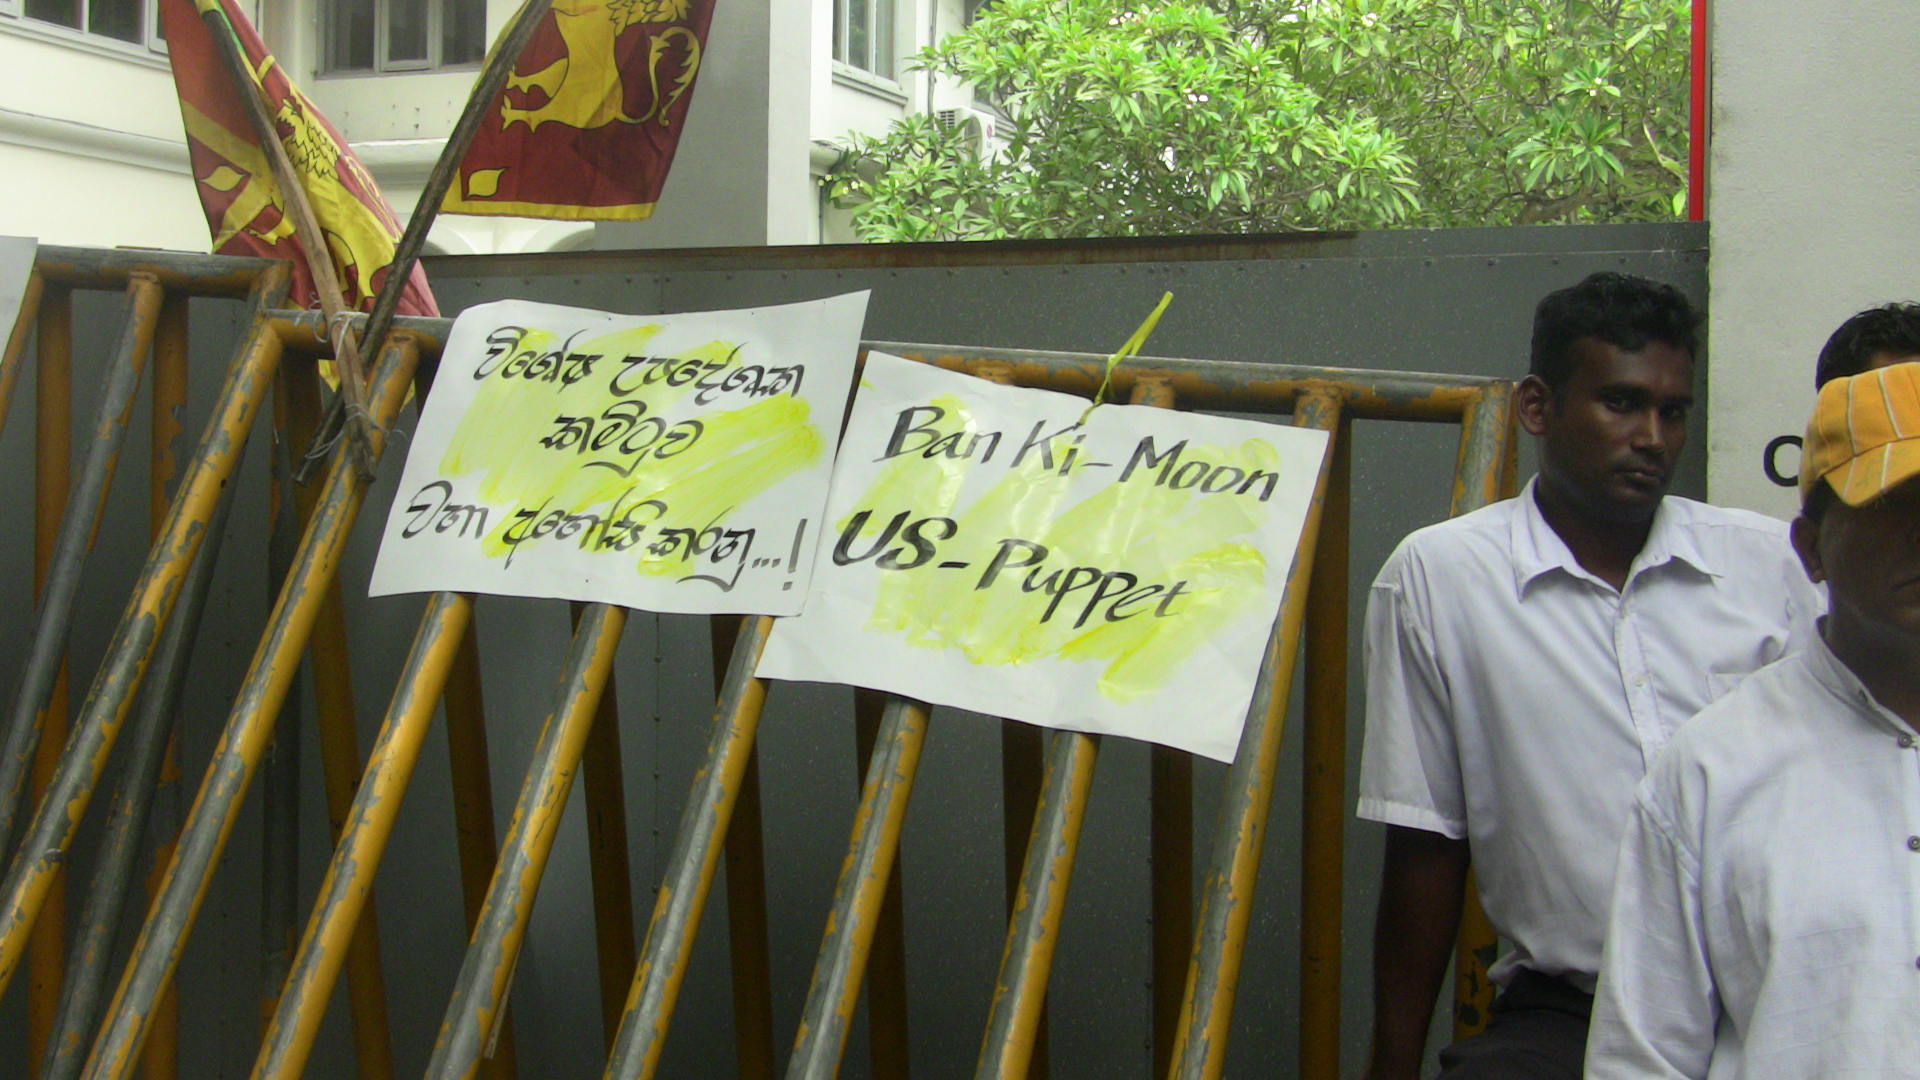 විශේෂ උපදේශක
කමිටුව
වහා අහෝසි කරනු...!
Ban Ki-Moon
US-Puppet